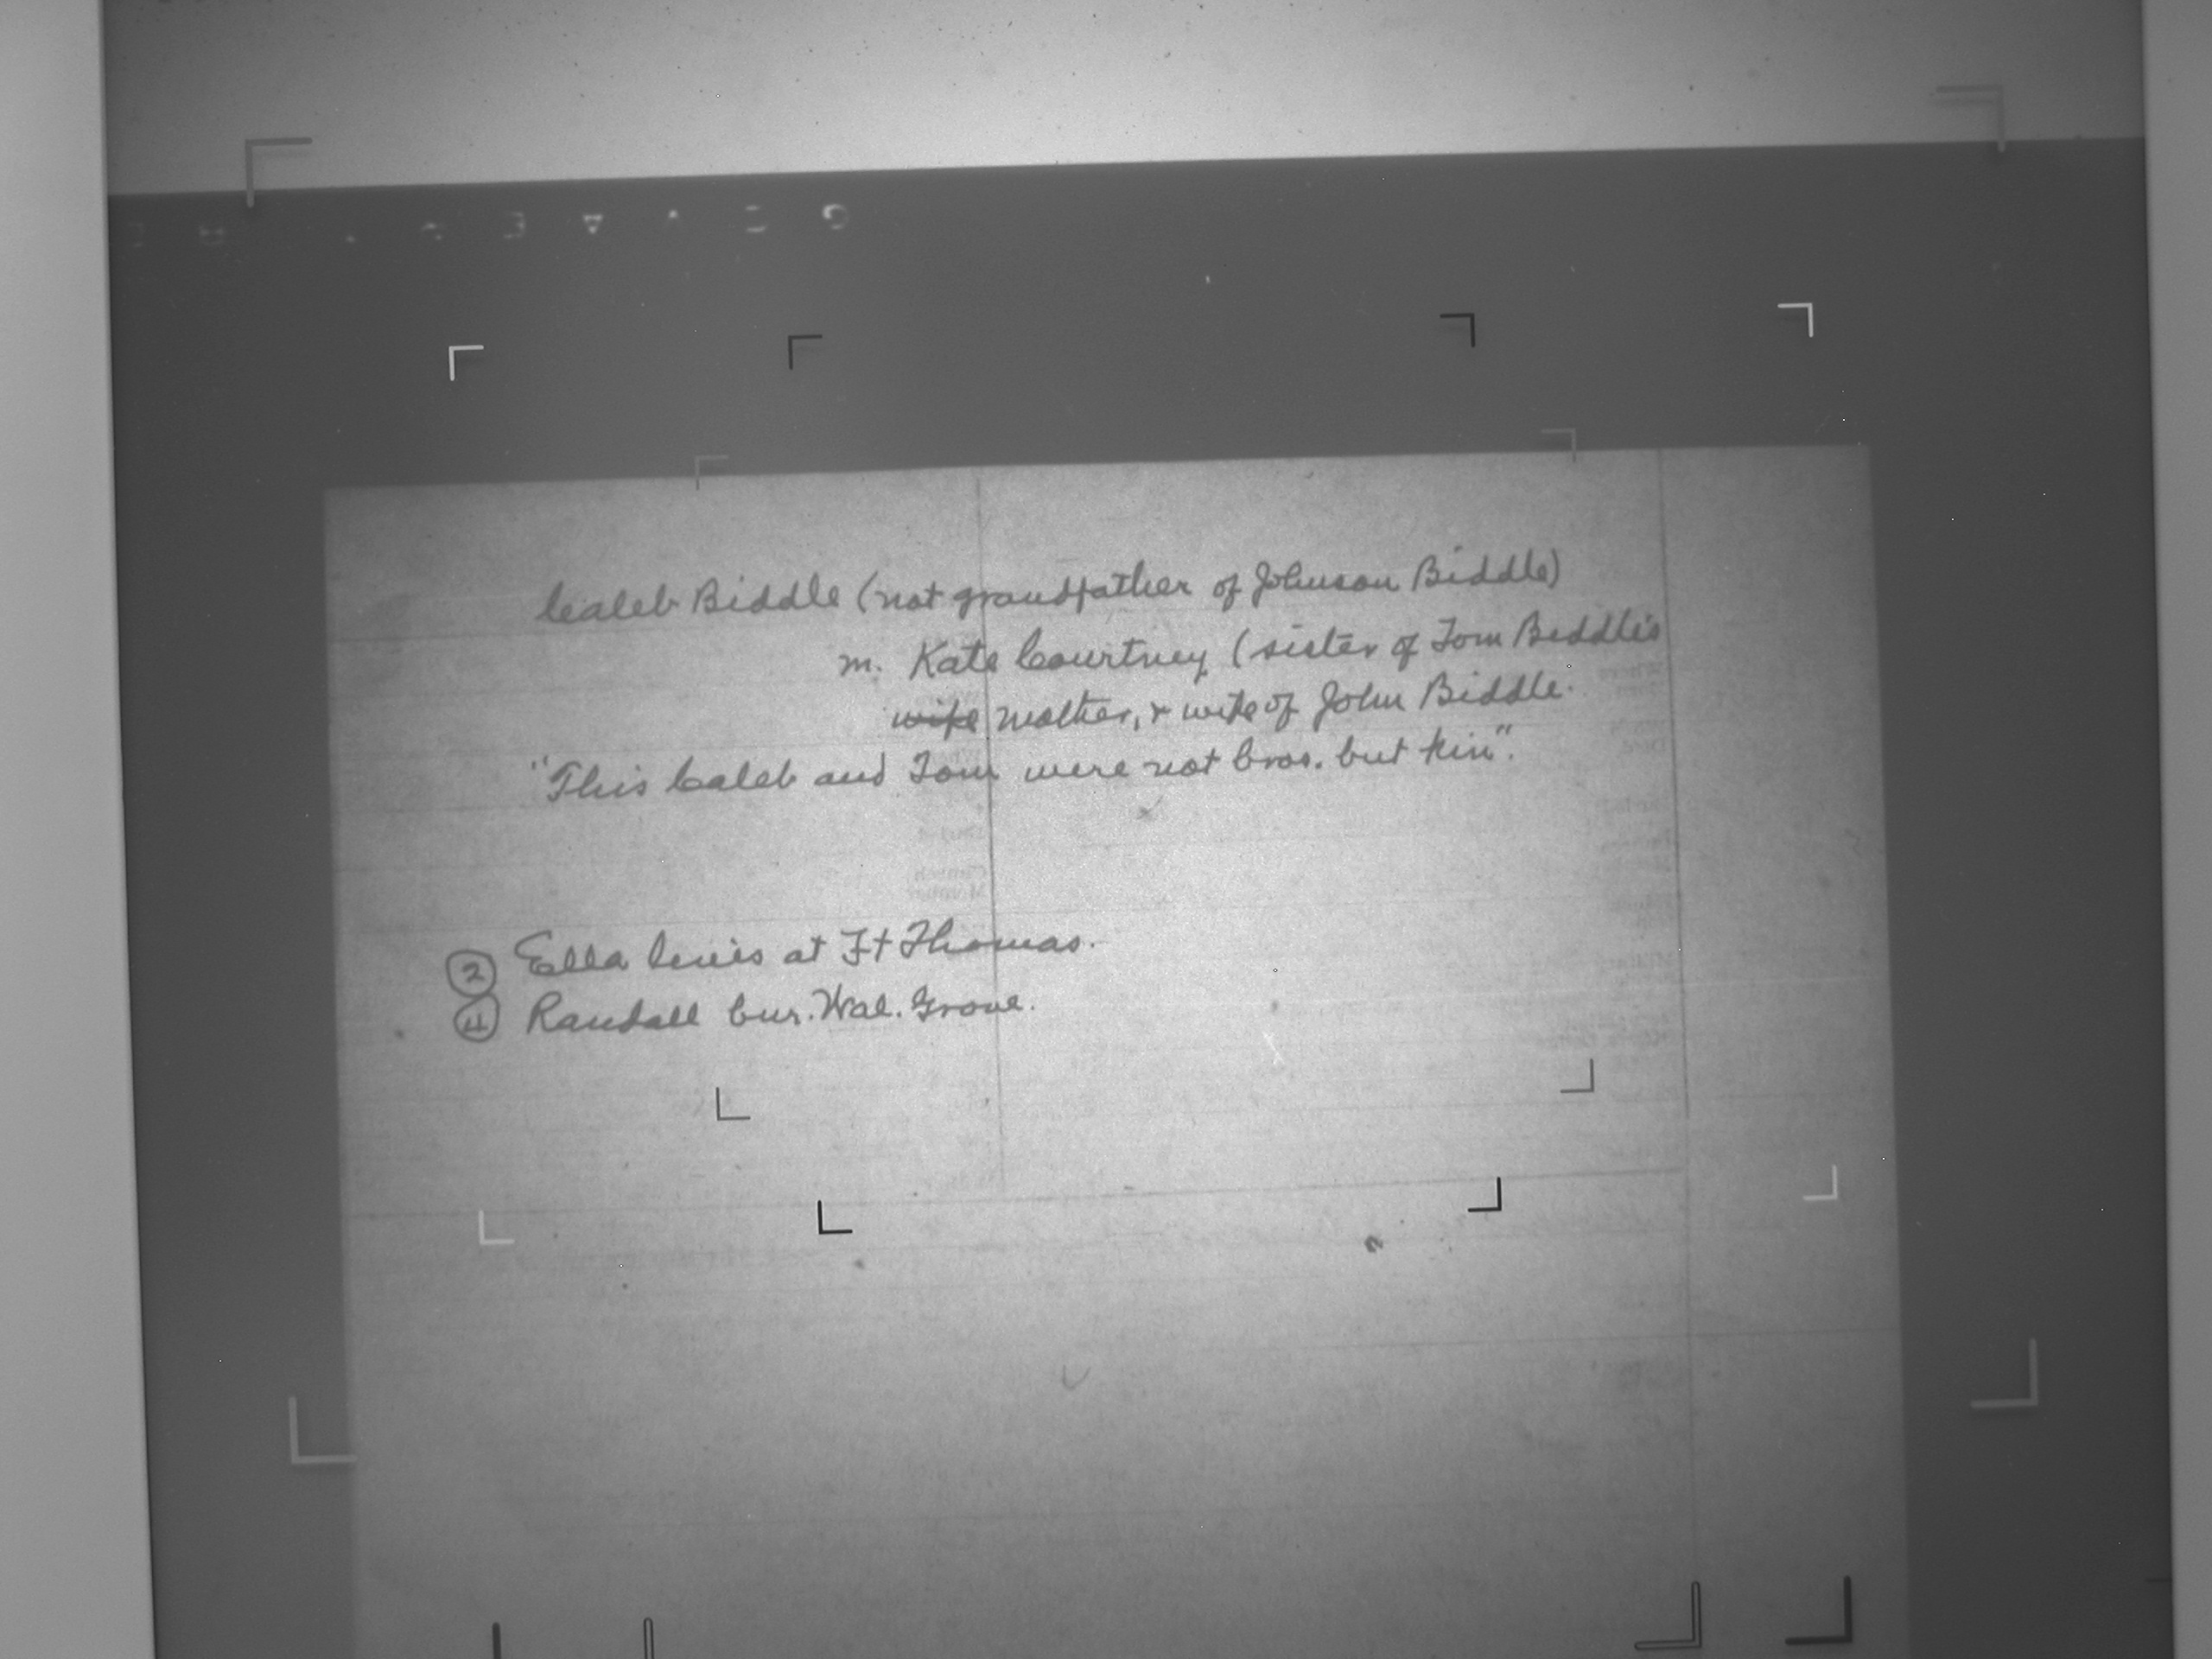 Caleb Biddle (not grandfather of Johnson Biddle)
m. Kate Courtney (sister of Tom Biddle's
wife mother, & wife of John Biddle.
"This Caleb and Tom were not bros. but kin".
② Ella lives at Ft Thomas.
④ Randall bur. Wal. Grove.